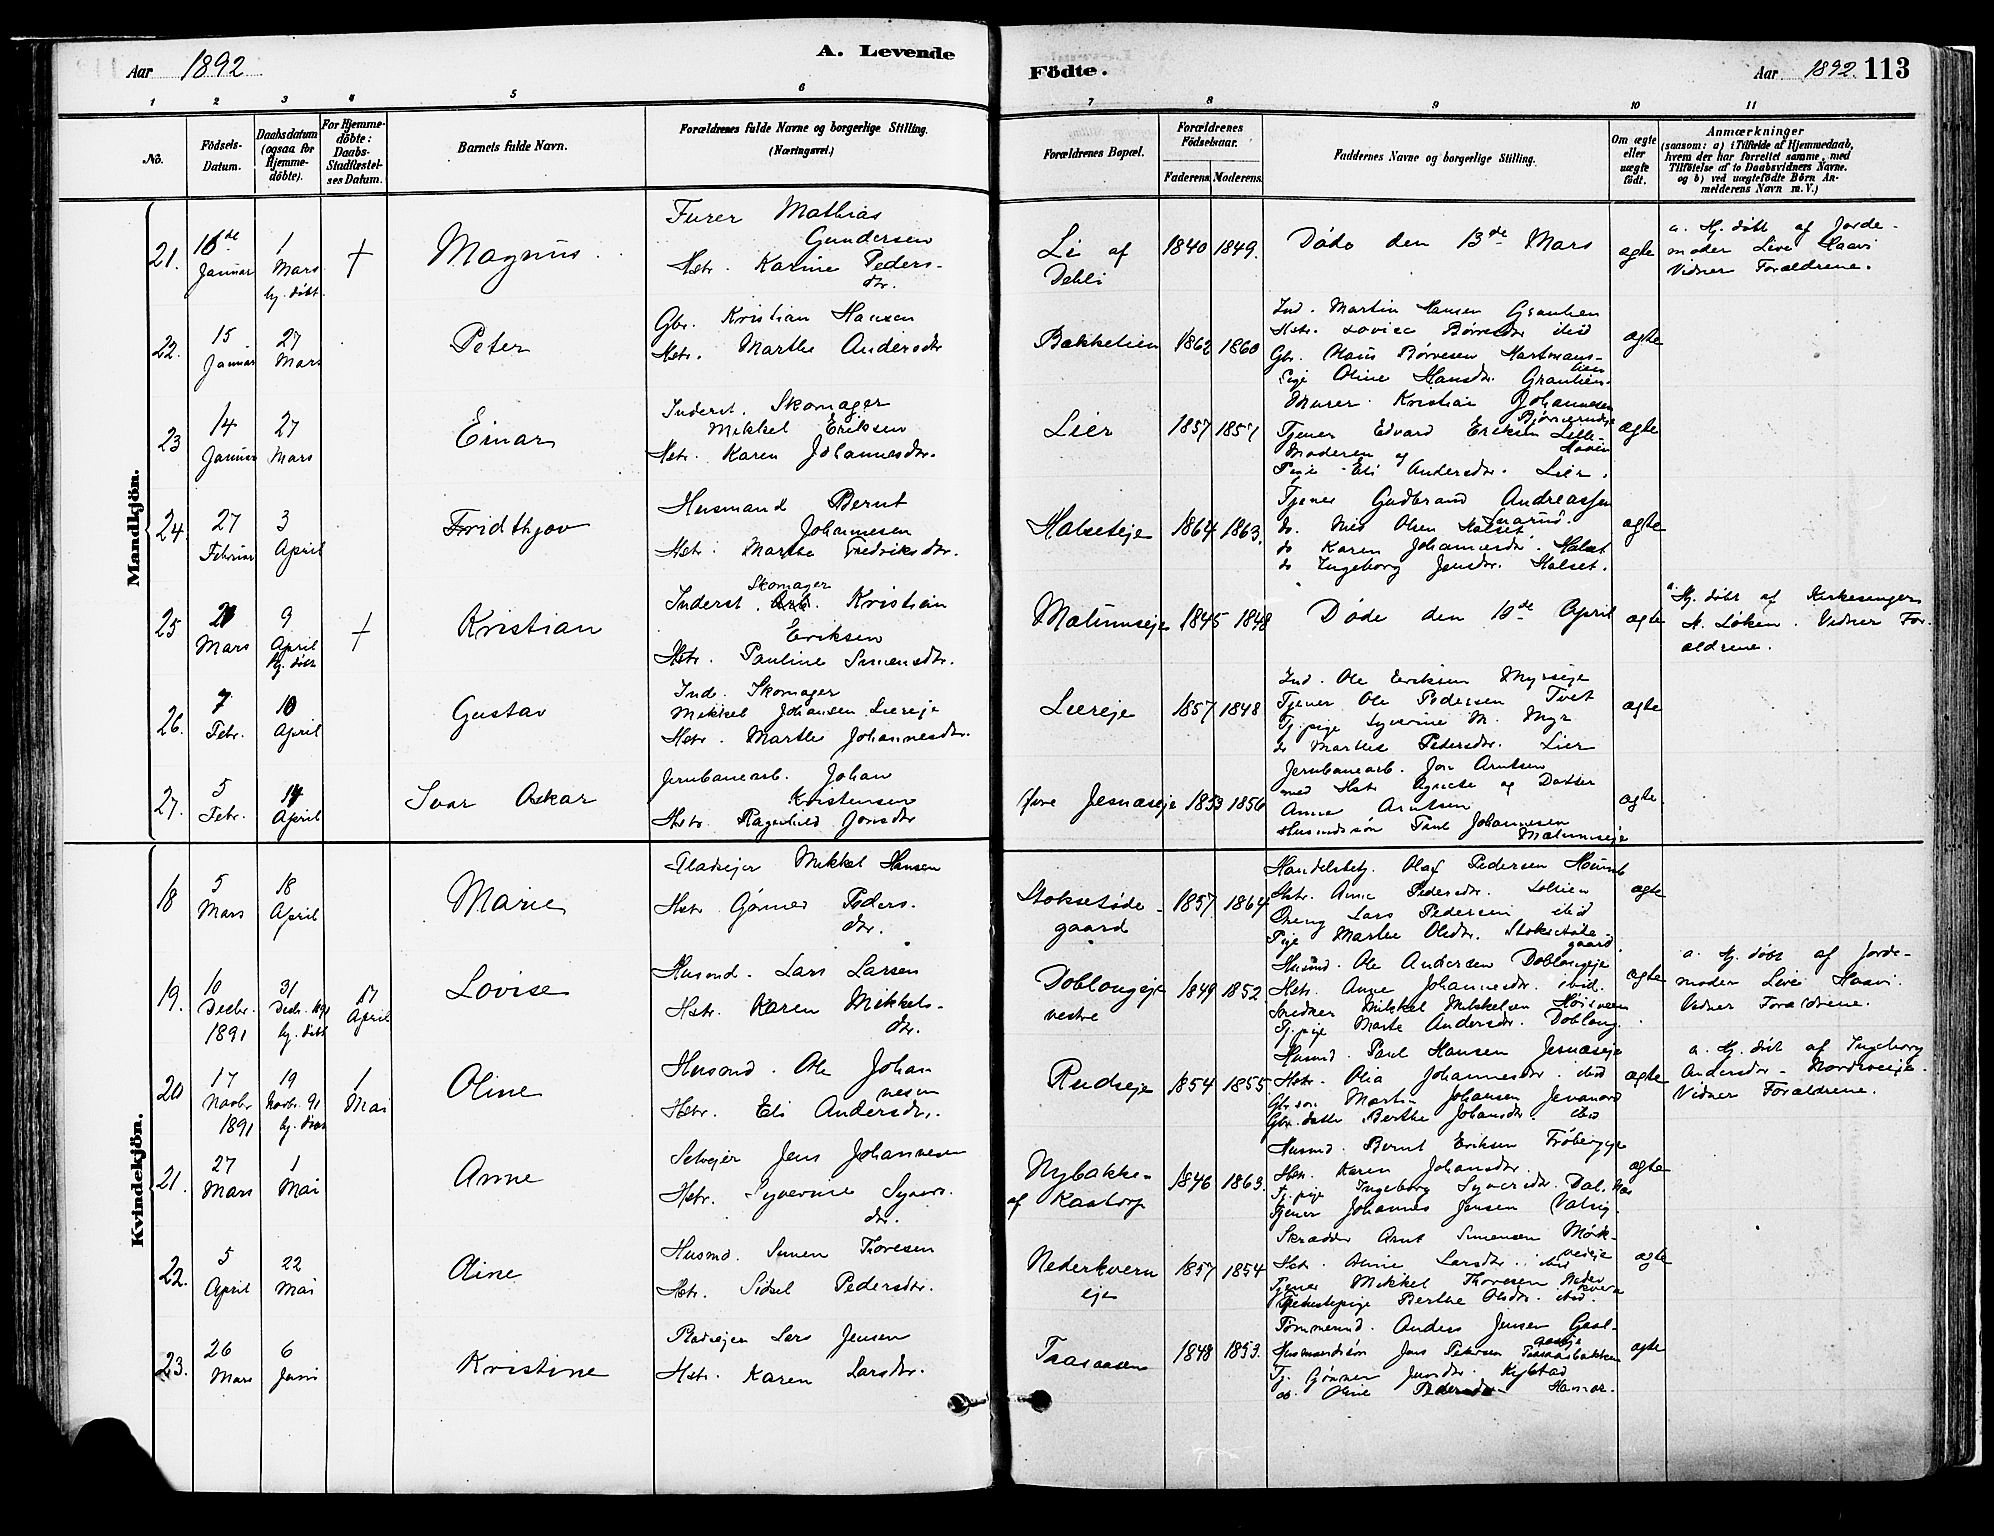 Aar 1892
A. Levende
Födte.
Aar 1892. 113
1 2 3 4 5 6 7 8 9 10 11
No.
Födsels-
Datum.
Daabsdatum
(ogsaa for
Hjemme-
döbte).
For Hjemme-
döbte:
Daabs-
Stadfæstel-
ses Datum.
Barnets fulde Navn.
Forældrenes fulde Navne og borgerlige Stilling.
(Næringsvei.)
Forældrenes Bopæl.
Forældrenes
Födselsaar.
Faderens. Moderens.
Faddernes Navne og borgerlige Stilling.
Om ægte
eller
uægte
födt.
Anmærkninger
(saasom: a) i Tilfælde af Hjemmedaab,
hvem der har forrettet samme, med
Tilföielse af to Daabsvidners Navne.
og b) ved uægtefödte Börn An-
melderens Navn m. V.)
Mandkjön.
21.
16de
Januar
1
Mars
hj. döbt
+
Magnus
Furer Mathias
Gundersen
Hstr. Karine Peders-
dr.
Li af
Dehli
1840 1849.
Døde den 13de Mars
ægte
a. Hj. döbt af Jorde-
moder Live Haavi
Vidner Forældrene.
22.
15
Januar
27
Mars
Peter
Gbr. Kristian Hansen
Hstr. Marthe Andersdtr
Bakkelien
1862 1860
Ind. Martin Hansen Granlien
Hstr. Lovise Børresdtr ibid
Gbr. Hans Børresen Hartmans-
lien
Pige Oline Hansdtr. Granlien
ægte
23
14
Januar
27
Mars
Einar
Inderst. Skomager
Mikkel Eriksen
Hstr. Karen Johannesdtr.
Lier
1857 1851
Murer Kristian Johannesen
Tjener Edvard Eriksen Lille-
Moderen og
Pige Eli Andersdtr. Lier.
ægte
24.
27
Februar
3
April
Fridthjov
Husmand Bernt
Johannesen
Hstr. Marthe Fredriksdtr.
Halseteje
1864 1863.
Tjener Gudbrand Andreassen
do. Nils Olsen Halset
do Karen Johannesdtr. Halset
do Ingeborg Jensdtr. Halset.
ægte
25
Mars
9
April
hj. döbt
+
Kristian
Skomager
Inderst. Kristian
Eriksen
Hstr. Pauline Simensdtr.
Mælumseje
1845 1848
Døde den 10de April
ægte
a. Hj. döbt af Kirkesanger
N. Løken. Vidner For-
ældrene.
26.
7
Febr.
10
April
Gustav
Ind. Skomager
Mikkel Johansen Liereje
Hstr. Marthe Johannesdtr.
Liereje
1857 1848
Ind. Ole Eriksen Myrseje
Tjener Ole Pedersen Tvet
Tj. pige Syverine M. Myr
do Marthe Pedersdtr. Lier
ægte
27.
5
Febr.
April
Ivar Oskar
Jernbanearb. Johan
Kristensen
Hstr. Ragnhild Jonsdtr
Jesnæseje
1853 1856
Jernbanearb. Jon Arntsen
med Hstr Agnete og Datter
Anne Arntsen
Husmdssön Paul Johannesen
Mælumseje
ægte
Kvindekjön.
18
5
Mars
18
April
Marie
Pladsejer Mikkel Hansen
Hstr. Gønner Peders-
dtr.
Stoksetøde-
gaard
1857 1864
Handelsbetj. Olaf Pedersen
Hstr. Anne Pedersdtr. Lohien
Dreng Lars Pedersen ibid
Pige Marthe Olsdtr. Stoksetøde-
gaard
ægte
19.
10
Decbr.
1891
31
Decbr. 1891
hj. döbt
17
April
Lovise
Husmd. Lars Larsen
Hstr. Karen Mikkels-
dtr.
Doblougeje
vestre
1849 1852
Husmd. Ole Andersen Doblougeje
Hstr. Anne Johannesdtr. ibid.
Snedker Mikkel Mikkelsen Høisveen
Tj. pige Marte Andersdtr. Doblong.
ægte
a. Hj. döbt af Jorde-
moder Live Haavi.
Vidner Forældrene.
20
17
Novbr
1891
19
Novbr. 91
hj. döbt
1
Mai
Oline
Husmd. Ole Johan
nesen
Hstr. Eli Andersdtr.
Rudseje
1854 1855
Husmd. Paul Hansen Jesnæseje
Hstr. Olia Johannesdtr. ibid
Gbr. søn Martin Johansen
Gbr. datter Berthe Johansdtr. ibid
ægte
a. Hj. döbt af Ingeborg
Andersdtr. Nordsveeje.
Vidner Forældrene.
21.
27
Mars
1
Mai
Anne
Selvejer Jens Johannesen
Hstr. Syverine Syvers-
dtr.
Nybakke-
af Kaatorp
1846 1863.
Husmd. Bernt Eriksen Frøbergeje
Hstr. Karen Johansdtr.
Tj. pige Ingeborg Syversdtr. Dal.
Tjener Johannes Jensen
ægte
22.
5
April
22
Mai
Oline
Husmd. Simen Thoresen
Hstr. Sidsel Pedersdtr.
Nederkvern
eje
1857 1854
Skrædder Arnt Simensen Mørk-
veseje
Hstr. Oline Larsdtr. ibid
Tjener Mikkel Thoresen Neder
kvern
Tjenestepige Berthe Olsdtr. ibid
ægte
23.
26
Mars
6
Juni
Kristine
Pladsejer Lars Jensen
Hstr. Karen Larsdtr.
Taasaasen
1848 1853.
Tømmermd. Anders Jensen Gaal-
aaseje
Husmandssön Jens Petersen Taasaasbakken
Tj. Gønner Jensdtr. Kylstad
do. Oline Pedersdtr Hamar.
ægte